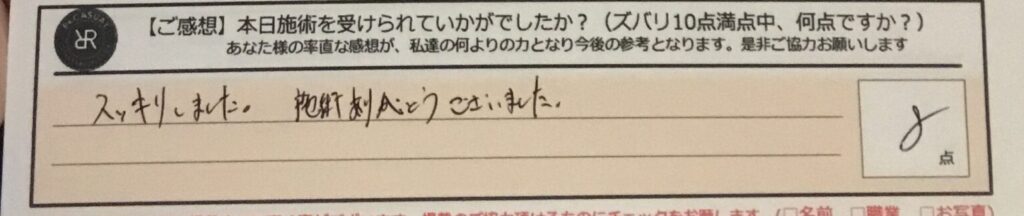 【ご感想】本日施術を受けられていかがでしたか？（ズバリ10点満点中、何点ですか？）
あなた様の率直な感想が、私達の何よりの力となり今後の参考となります。是非ご協力お願いします
スッキリしました。 施術ありがとうございました。
8
点
□名前 □職業 □お写真）